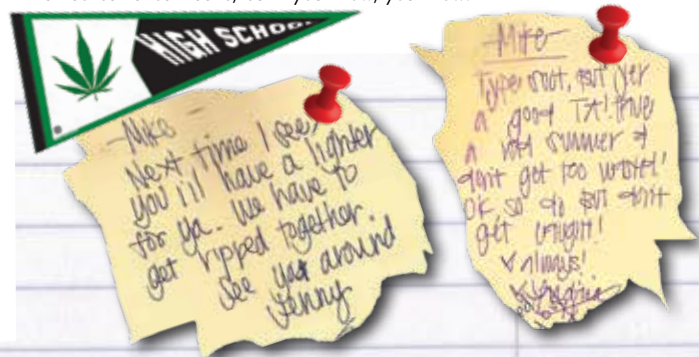 HIGH SCHOOL
-Mike
Next time I see
you I'll have a lighter
for ya. We have to
get ripped together.
See ya around
Jenny
-Mike-
good TA! Have
summer &
don't get too
OK so do but don't
get caught!
always!